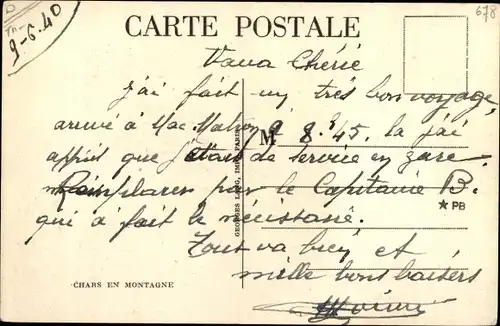 678
D
9-6.40
CARTE POSTALE
Vava Chérie
j'ai fait un très bon voyage,
arrivé à Mac Mahon 8.45. la j'ai
appris que j'étais de service en gare.
Remplacer par le Capitaine B.
qui a fait le nécessaire.
Tout va bien et
mille bons baisers
M
★ PB
GEORGES LANG, IMP. PARIS
CHARS EN MONTAGNE